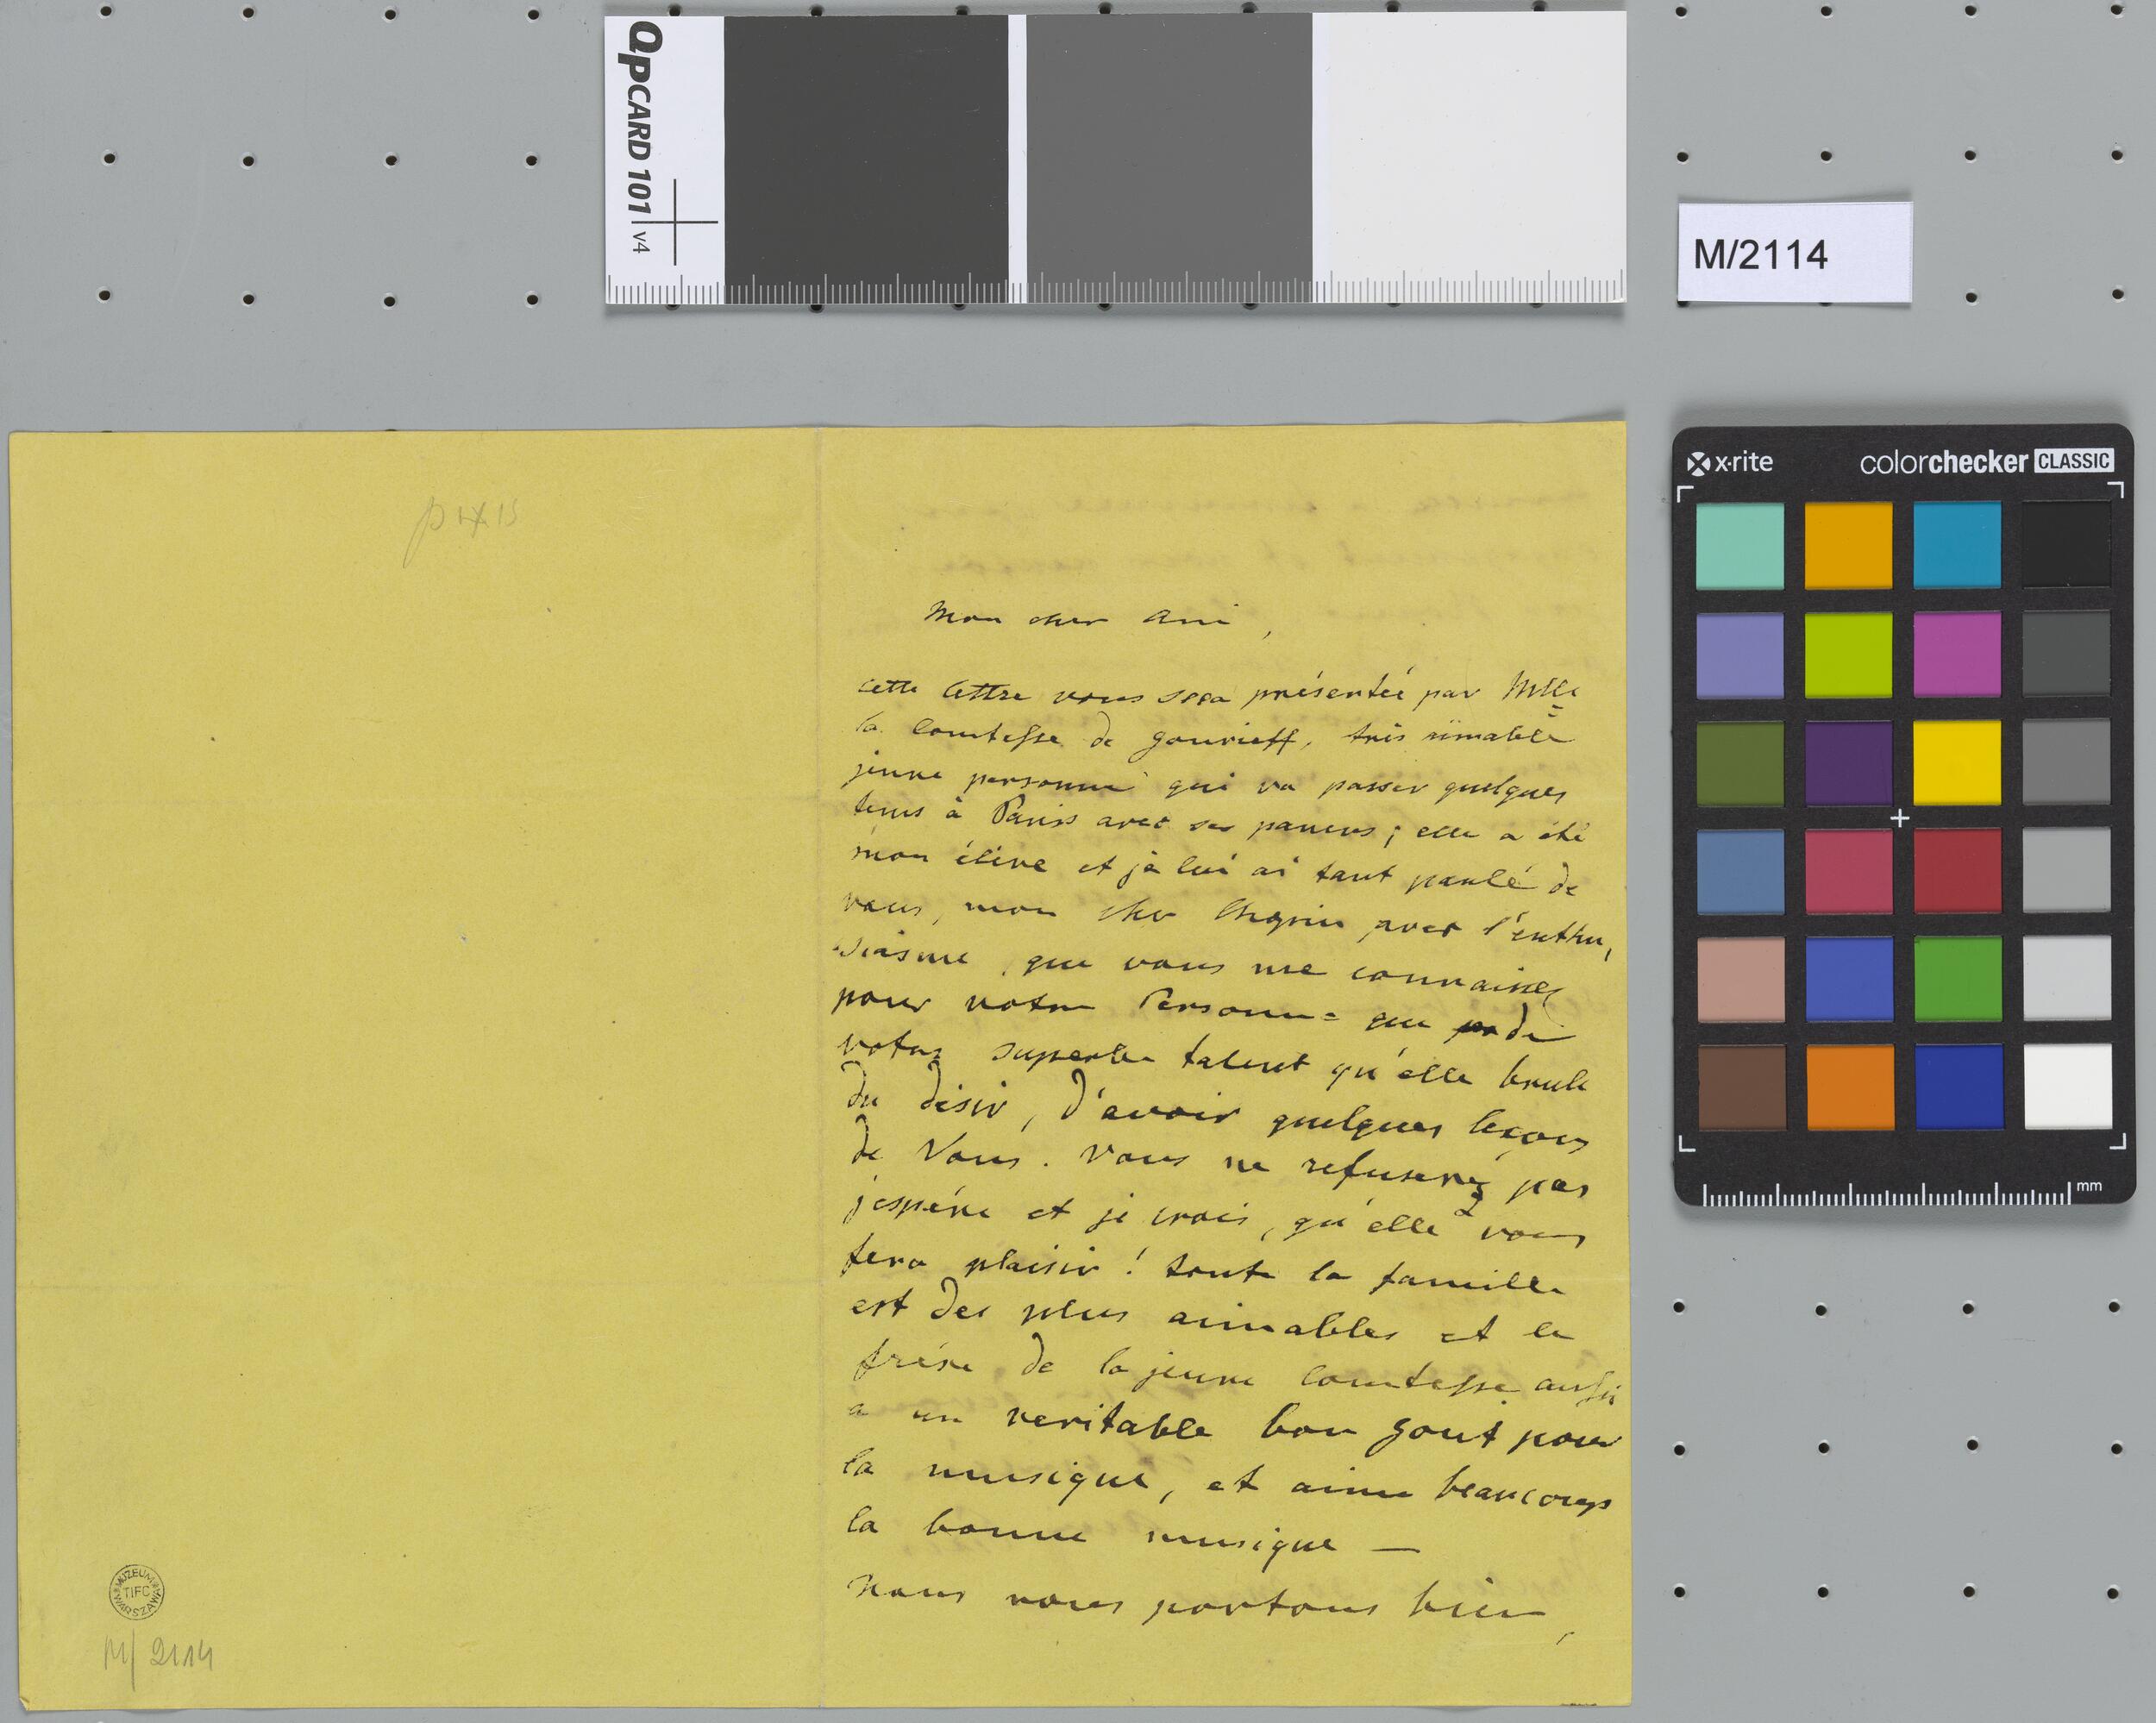 QPCARD 101 v4
M/2114
x·rite colorchecker CLASSIC
mm
pixis
Mon cher Ami,
cette lettre vous sera présentée par Mlle
la Comtesse de Gourieff, très aimable
jeune personne qui va passer quelques
tems à Paris avec ses parens; elle a été
mon élève et je lui ai tant parlé de
vous, mon cher Chopin avec l'enthu,
siasme, que vous me connaissez
pour votre Personne que de
votre superbe talent qu'elle brule
du désir, d'avoir quelques leçons
de Vous. Vous ne refuserez pas
j'espére et je crois, qu'elle vous
fera plaisir! toute la famille
est des plus aimables et le
frère de la jeune Comtesse aussi
a un veritable bon gout pour
la musique, et aime beaucoup
la bonne musique —
Nous nous portons bien,
MUZEUM TIFC WARSZAWA
M/2114